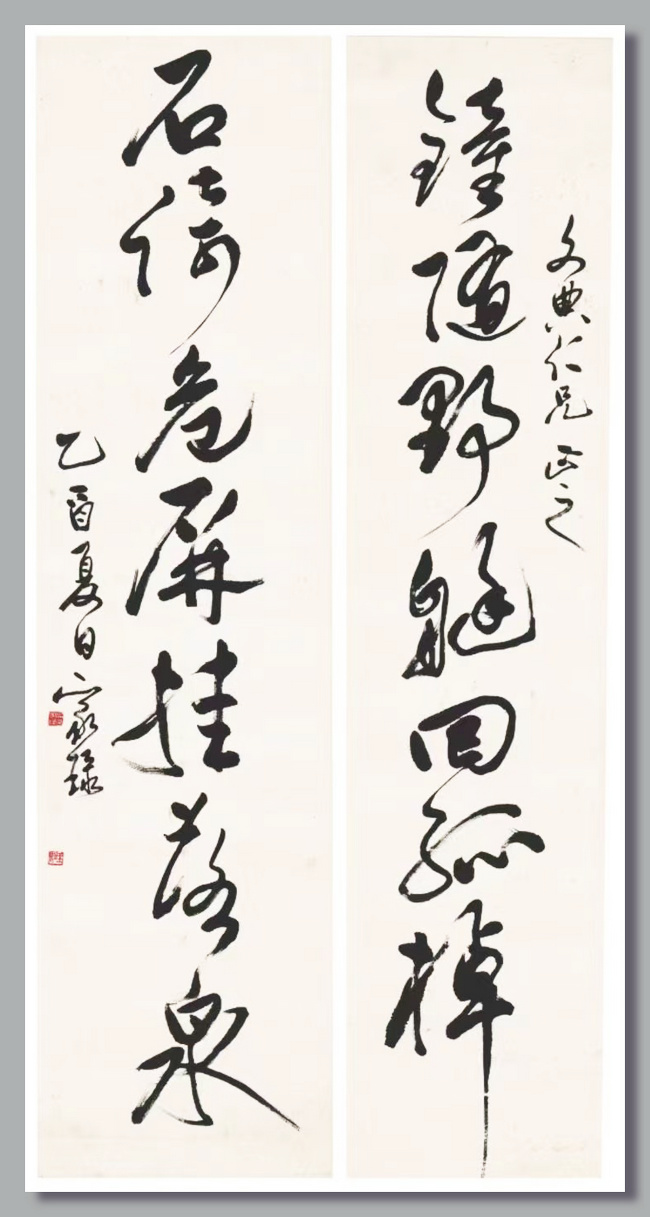 文典仁兄正之
鐘随野艇回孤棹
石倚危屏挂落泉
乙酉夏日家